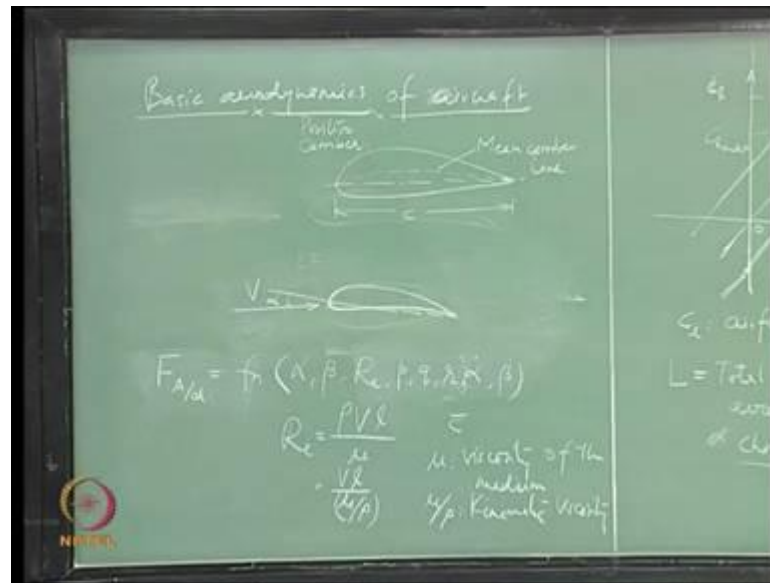 Basic aerodynamics of aircraft
Positive
Camber
Mean camber
Line
c
V
α
F_A/d = fn (α, β, Re, p, q, r, α̇, β̇)
Re = ρVl/μ
c̄
= Vl/(μ/ρ)
μ: viscosity of the
medium
μ/ρ: Kinematic Viscosity
NPTEL
C_l
C_lmax
0
C_l:
L = Total
α